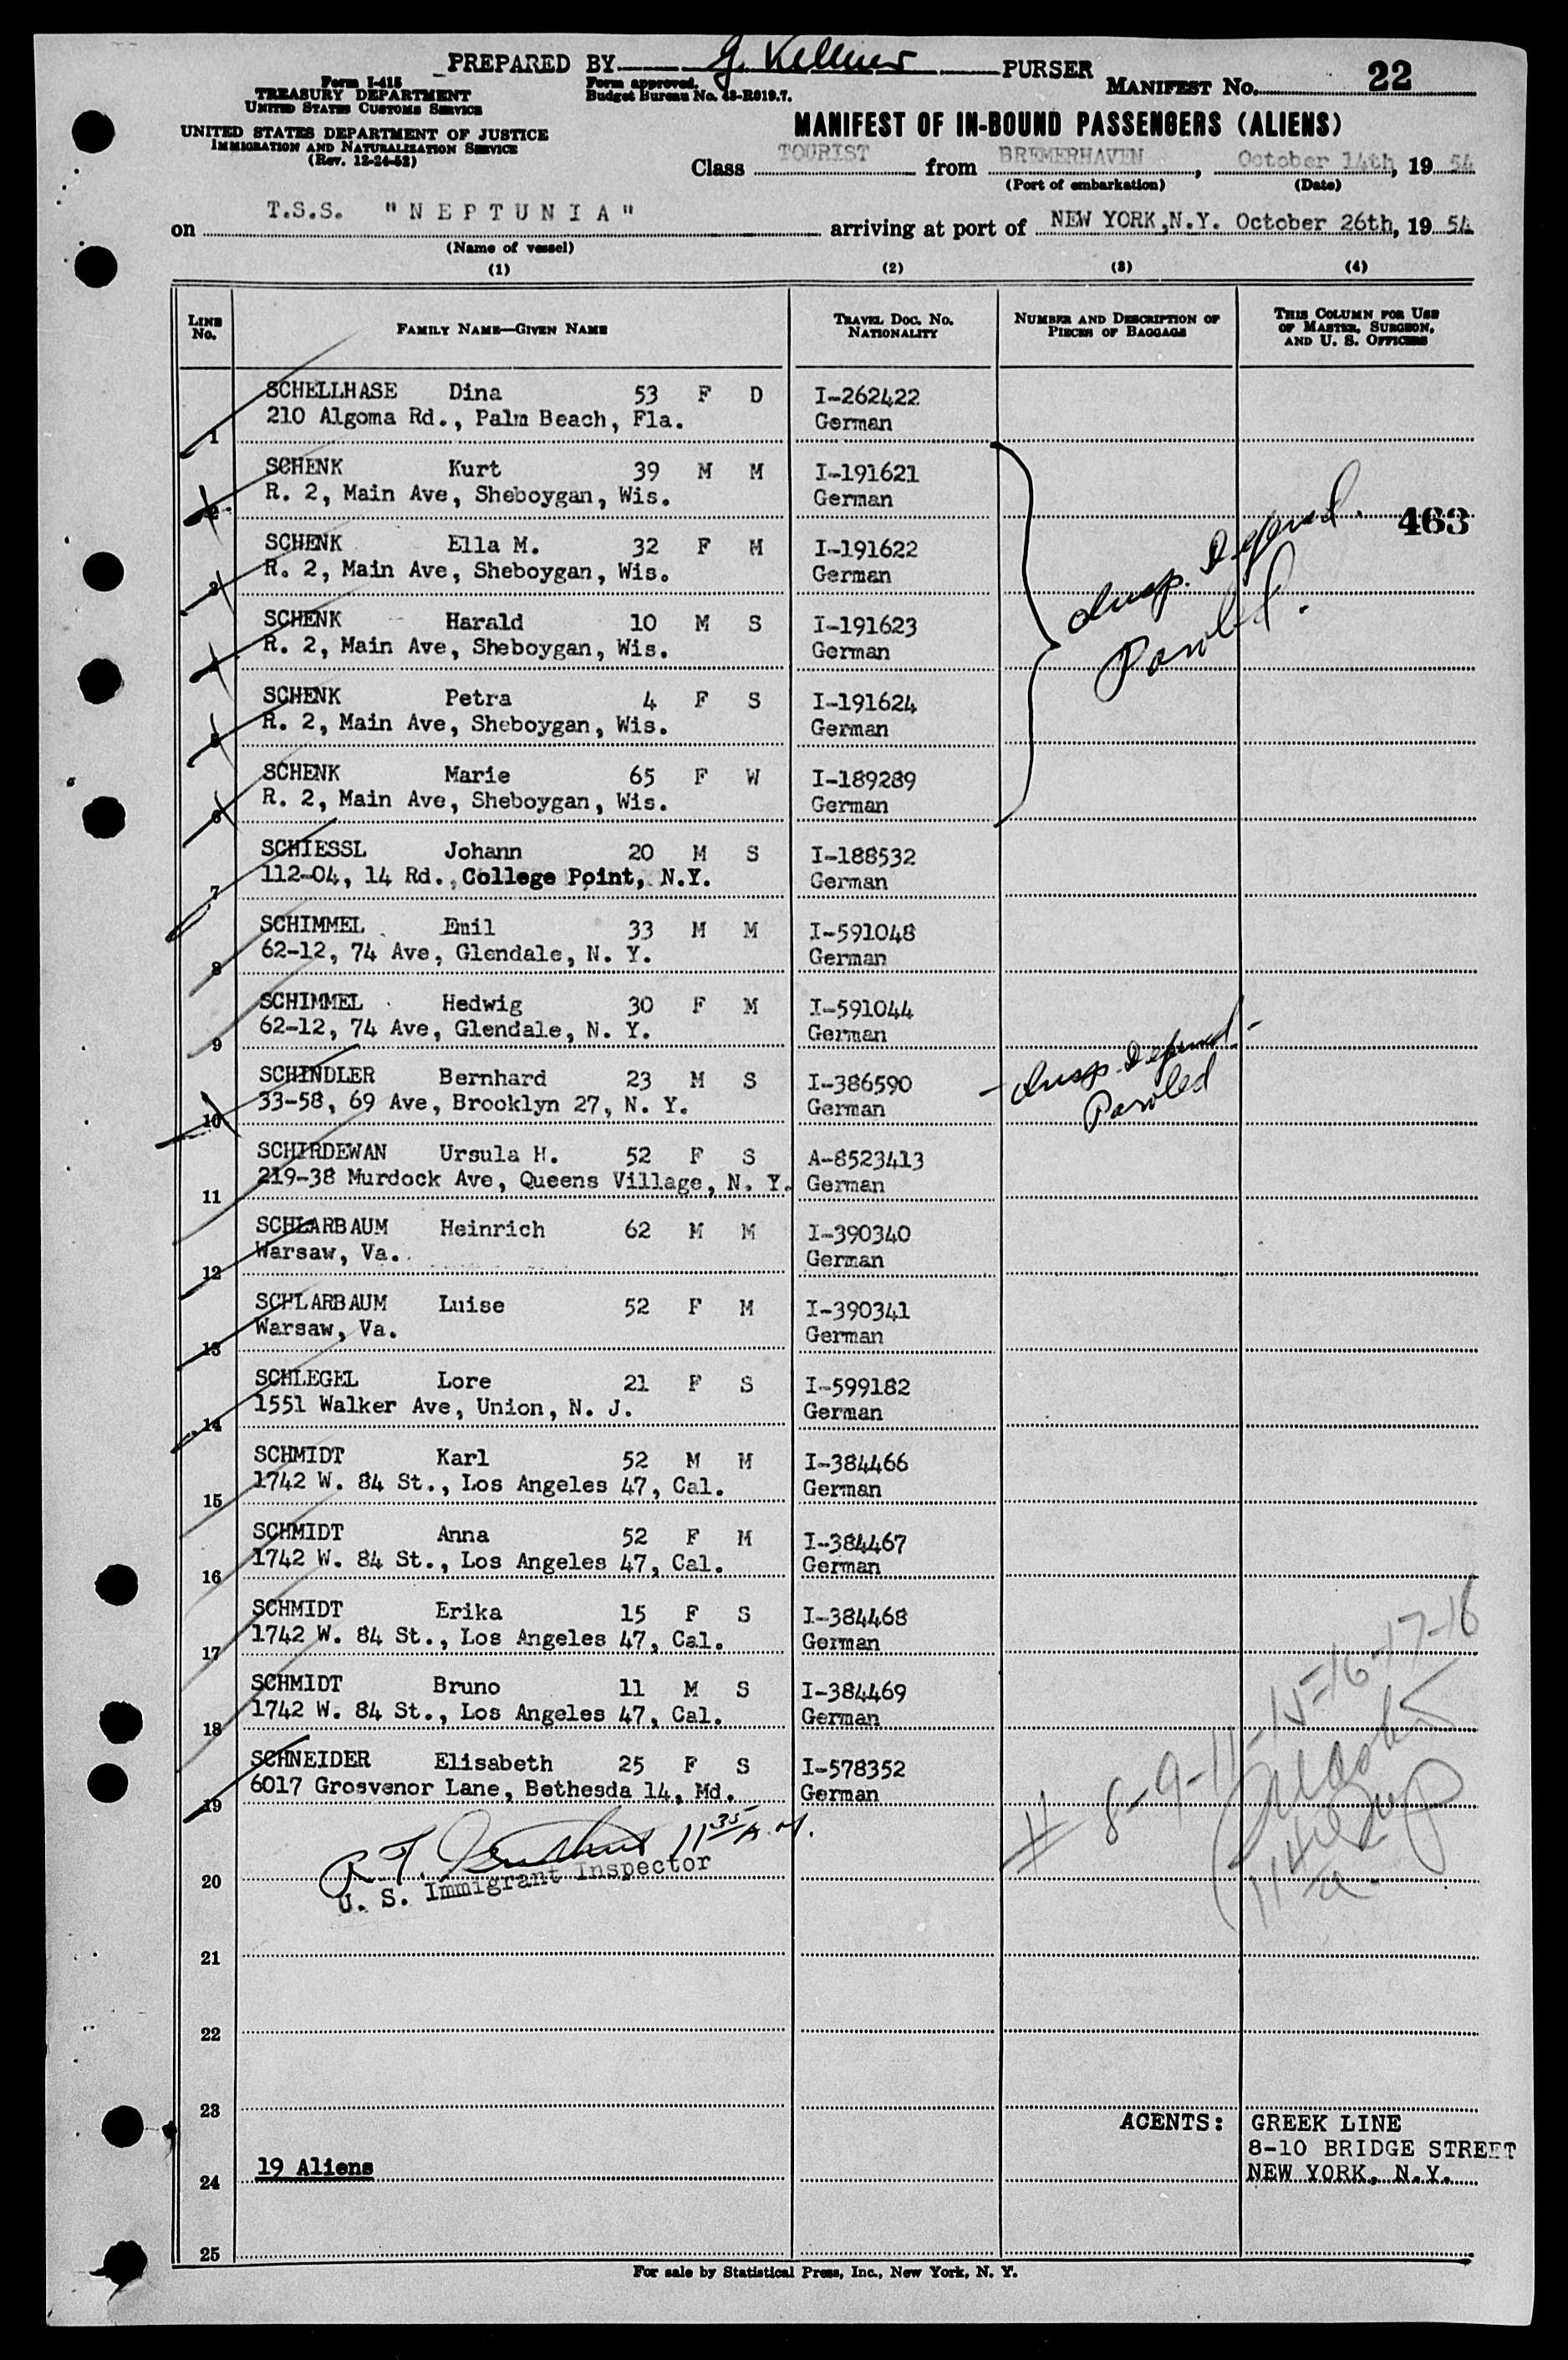 PREPARED BY G. Kellner PURSER
Form I-415
TREASURY DEPARTMENT
UNITED STATES CUSTOMS SERVICE
Form approved.
Budget Bureau No. 43-R019.7.
MANIFEST NO. 22
UNITED STATES DEPARTMENT OF JUSTICE
IMMIGRATION AND NATURALIZATION SERVICE
(Rev. 12-24-52)
MANIFEST OF IN-BOUND PASSENGERS (ALIENS)
Class TOURIST from BREMERHAVEN, October 14th, 19 54
(Port of embarkation) (Date)
on T.S.S. "NEPTUNIA" arriving at port of NEW YORK,N.Y. October 26th, 19 54
(Name of vessel)
(1) (2) (3) (4)
LINE NO. FAMILY NAME—GIVEN NAME TRAVEL DOC. NO. NATIONALITY NUMBER AND DESCRIPTION OF PIECES OF BAGGAGE THIS COLUMN FOR USE OF MASTER, SURGEON, AND U. S. OFFICERS
SCHELLHASE Dina 53 F D I-262422
1 210 Algoma Rd., Palm Beach, Fla. German
SCHENK Kurt 39 M M I-191621
2 R. 2, Main Ave, Sheboygan, Wis. German
463
SCHENK Ella M. 32 F M I-191622
3 R. 2, Main Ave, Sheboygan, Wis. German
Insp. Deferred.
Paroled.
SCHENK Harald 10 M S I-191623
4 R. 2, Main Ave, Sheboygan, Wis. German
SCHENK Petra 4 F S I-191624
5 R. 2, Main Ave, Sheboygan, Wis. German
SCHENK Marie 65 F W I-189289
6 R. 2, Main Ave, Sheboygan, Wis. German
SCHIESSL Johann 20 M S I-188532
7 112-04, 14 Rd., College Point, N.Y. German
SCHIMMEL Emil 33 M M I-591048
8 62-12, 74 Ave, Glendale, N. Y. German
SCHIMMEL Hedwig 30 F M I-591044
9 62-12, 74 Ave, Glendale, N. Y. German
SCHINDLER Bernhard 23 M S I-386590
10 33-58, 69 Ave, Brooklyn 27, N. Y. German
- Insp. Deferred -
Paroled
SCHIRDEWAN Ursula H. 52 F S A-8523413
11 219-38 Murdock Ave, Queens Village, N. Y. German
SCHLARBAUM Heinrich 62 M M I-390340
12 Warsaw, Va. German
SCHLARBAUM Luise 52 F M I-390341
13 Warsaw, Va. German
SCHLEGEL Lore 21 F S I-599182
14 1551 Walker Ave, Union, N. J. German
SCHMIDT Karl 52 M M I-384466
15 1742 W. 84 St., Los Angeles 47, Cal. German
SCHMIDT Anna 52 F M I-384467
16 1742 W. 84 St., Los Angeles 47, Cal. German
SCHMIDT Erika 15 F S I-384468
17 1742 W. 84 St., Los Angeles 47, Cal. German
SCHMIDT Bruno 11 M S I-384469
18 1742 W. 84 St., Los Angeles 47, Cal. German
SCHNEIDER Elisabeth 25 F S I-578352
19 6017 Grosvenor Lane, Bethesda 14, Md. German
# 8-9-11-15-16-17-18
R. T. 11 35 A.M.
20 U. S. Immigrant Inspector
21
22
23
AGENTS: GREEK LINE
8-10 BRIDGE STREET
24 19 Aliens NEW YORK, N.Y.
25
For sale by Statistical Press, Inc., New York, N. Y.